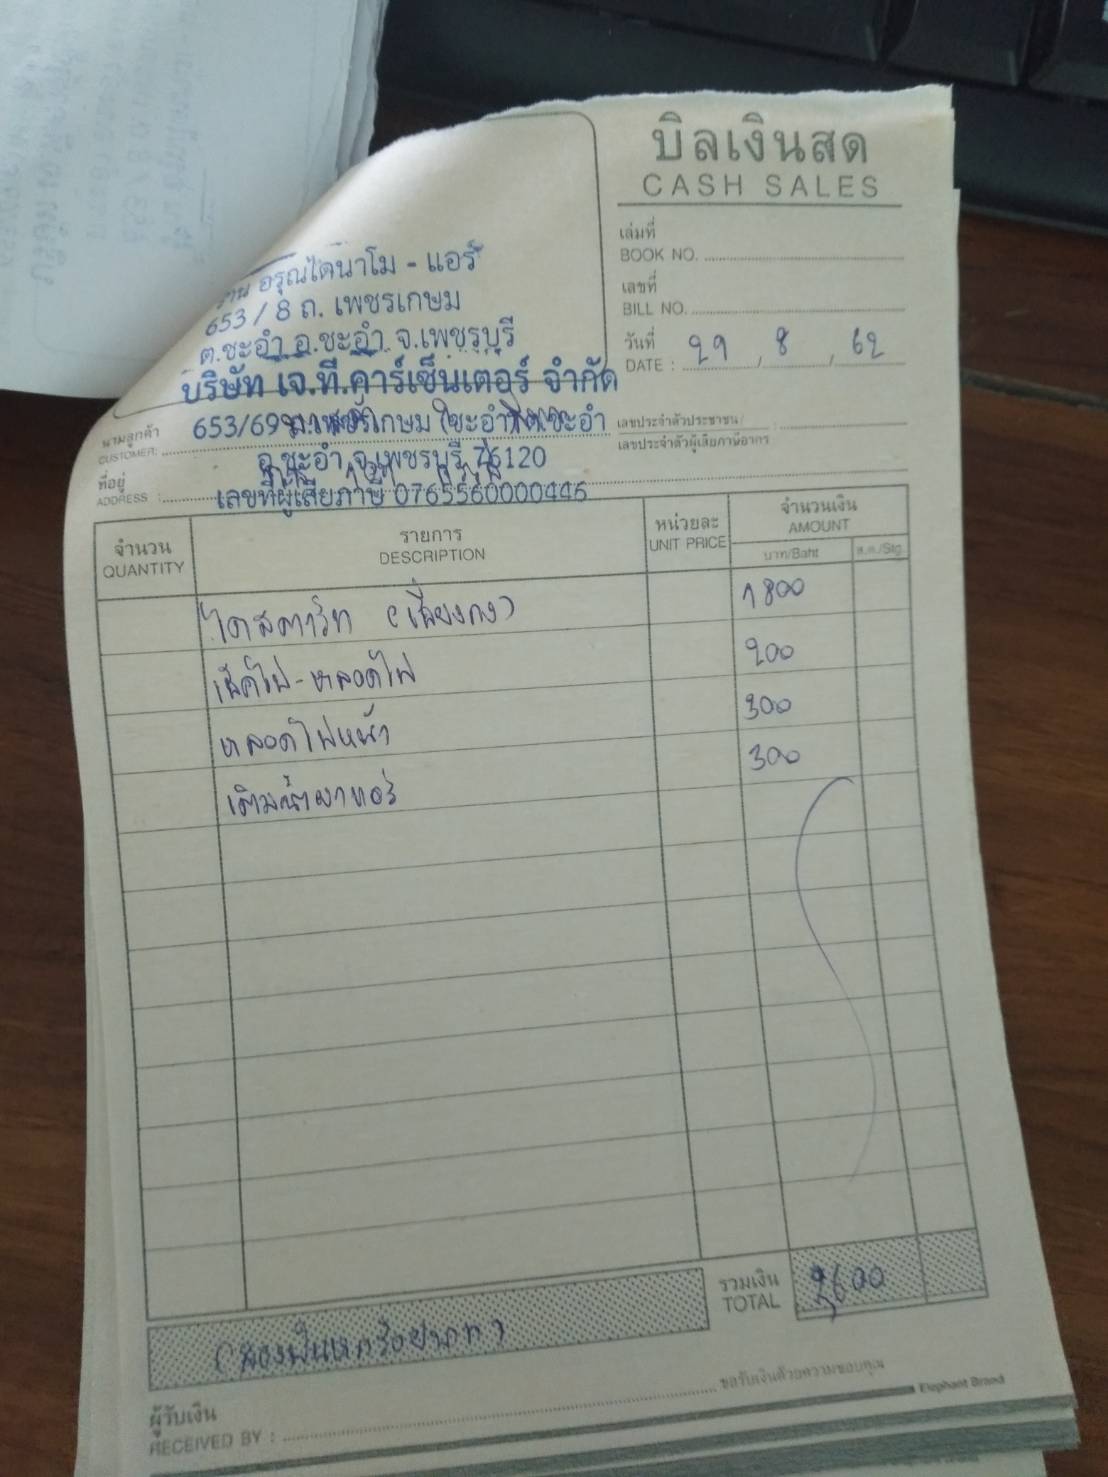 บิลเงินสด
CASH SALES
เล่มที่
BOOK NO.
เลขที่
BILL NO.
วันที่
DATE : 29 / 8 / 62
ร้าน อรุณไดนาโม - แอร์
653 / 8 ถ. เพชรเกษม
ต.ชะอำ อ.ชะอำ จ.เพชรบุรี
บริษัท เจ.ที.คาร์เซ็นเตอร์ จำกัด
นามลูกค้า
CUSTOMER:
653/69 ถ.เพชรเกษม ต.ชะอำ
เลขประจำตัวประชาชน/
เลขประจำตัวผู้เสียภาษีอากร
อ.ชะอำ จ.เพชรบุรี 76120
ที่อยู่
ADDRESS :
เลขที่ผู้เสียภาษี 0765560000446
จำนวน รายการ หน่วยละ จำนวนเงิน
QUANTITY DESCRIPTION UNIT PRICE AMOUNT
บาท/Baht ส.ต./Stg.
ไดสตาร์ท (เชียงกง) 1800
เช็คไฟ-หลอดไฟ 200
หลอดไฟหน้า 300
เติมน้ำยาแอร์ 300
รวมเงิน
TOTAL 2600
(สองพันหกร้อยบาท)
ขอรับเงินด้วยความขอบคุณ
Elephant Brand
ผู้รับเงิน
RECEIVED BY :